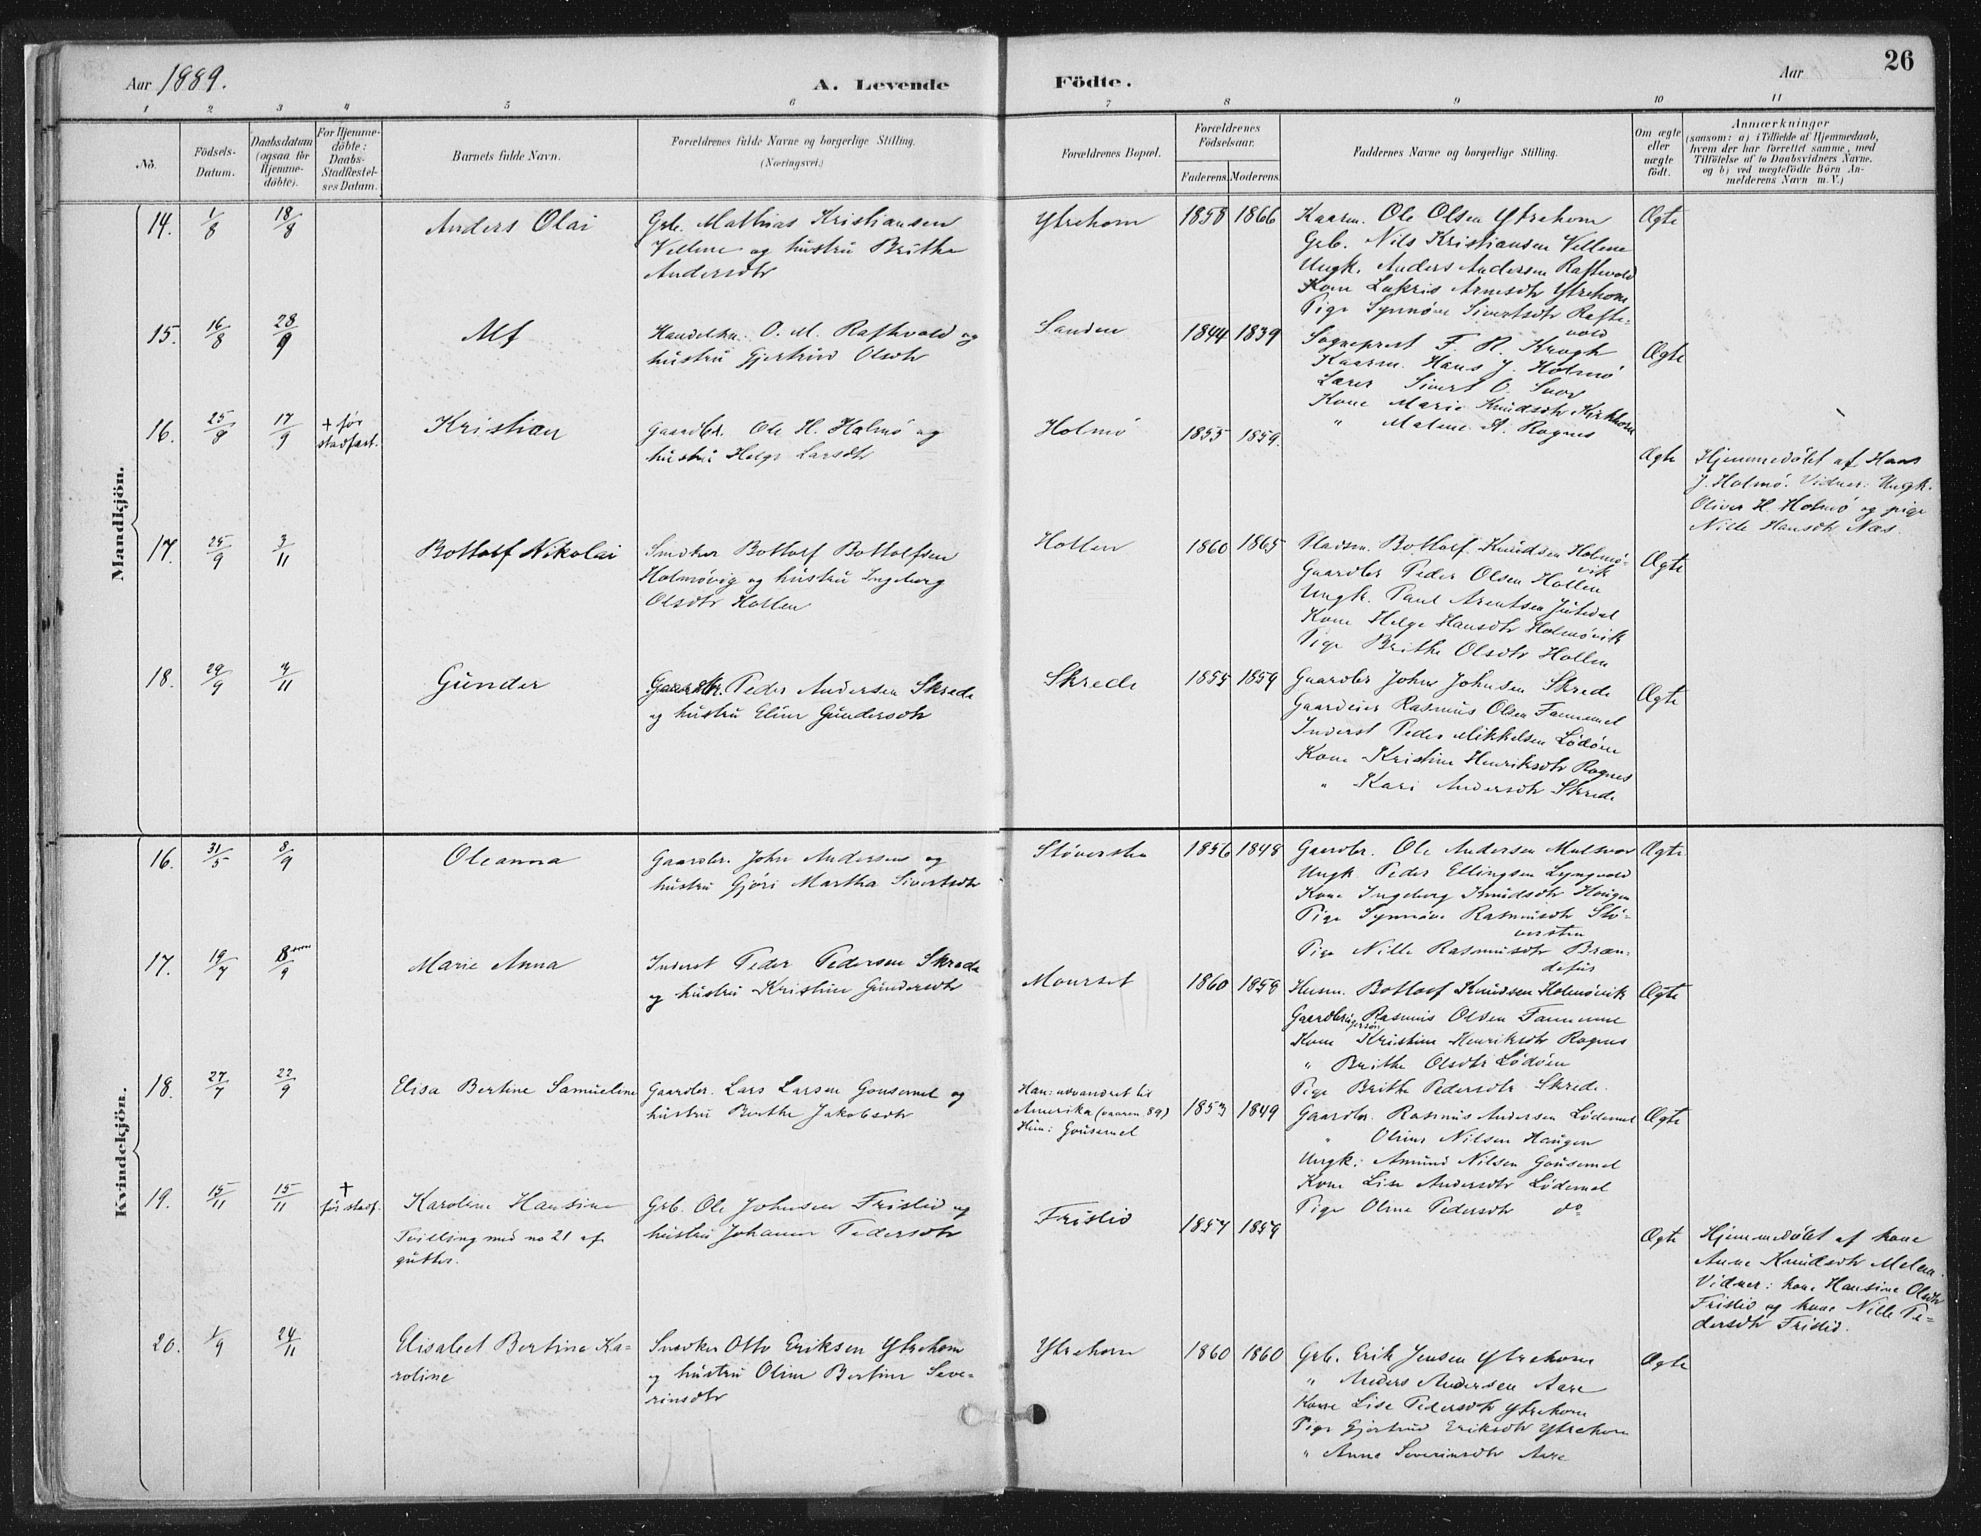 Aar 1889.
A. Levende Födte.
Aar
26
1 2 3 4 5 6 7 8 9 10 11
No.
Födsels-Datum.
Daabsdatum (ogsaa for Hjemme-döbte).
For Hjemme-döbte: Daabs-Stadfæstel-ses Datum.
Barnets fulde Navn.
Forældrenes fulde Navne og borgerlige Stilling.
(Næringsvei.)
Forældrenes Bopæl.
Forældrenes Födselsaar.
Faderens. Moderens.
Faddernes Navne og borgerlige Stilling.
Om ægte eller uægte födt.
Anmærkninger
(saasom: a) i Tilfælde af Hjemmedaab, hvem der har forrettet samme, med Tilföielse af to Daabsvidners Navne. og b) ved uægtefödte Börn An-melderens Navn m. V.)
Mandkjön.
14. 1/8 18/8 Anders Olai
Grb. Mathias Kristiansen
Vellene og hustru Brithe
Andersdtr
Ytrehorn 1858 1866
Kaarm. Ole Olsen Ytrehorn
Grb. Nils Kristiansen Vellene
Ungk. Anders Andersen Raftevold
Kone Lukris Arnesdtr Ytrehorn
Pige Synnøve Sivertsdtr Rafte-
vold
Ægte
15. 16/8 28/9 Alf
Handelsm. O. M. Raftevold og
hustru Gjertrud Olsdtr
Sanden 1844 1839
Sogneprest F. R. Krogh
Kaarm. Hans J. Holmö
Lærer Sivert O. Svor
Kone Marie Knudsdtr Kirkhorn
" Malene A. Rognes
Ægte
16. 25/8 17/9 + før
stadfæst.
Kristian
Gaardbr. Ole H. Holmö og
hustru Helge Larsdtr
Holmö 1855 1859.
Ægte
Hjemmedöbt af Hans
J. Holmö. Vidner: Ungk.
Oliver H. Holmö og pige
Nille Hansdtr Næs.
17. 25/9 3/11 Bottolf Nikolai
Snedker Bottolf Bottolfsen
Holmövig og hustru Ingeborg
Olsdtr Hollen
Hollen 1860 1865
Pladsm. Bottolf Knudsen Holmö-
vik
Gaardbr Peder Olsen Hollen
Ungk. Paul Arentsen
Kone Helge Hansdtr Holmövik
Pige Brithe Olsdtr Hollen
Ægte
18. 29/9 3/11 Gunder
Gaardbr. Peder Andersen Skrede
og hustru Eline Gundersdtr
Skrede 1855 1859
Gaardbr Johns Johnsen Skrede
Gaardeier Rasmus Olsen Fannemel
Inderst Peder Mikkelsen Lödöen
Kone Kristine Henriksdtr Rognes
" Kari Andersdtr Skrede
Ægte
Kvindekjön.
16. 31/5 8/9 Oleanna
Gaardbr. John Andersen og
hustru Gjöri Martha Sivertsdtr
Stöversten 1856 1848
Gaardbr. Ole Andersen Mulsvor
Ungk. Peder Ellingsen Lyngvold
Kone Ingeborg Knudsdtr Haugen
Pige Synnøve Rasmusdtr Stö-
versten
Pige Nille Rasmusdtr Bræn-
dehus
Ægte
17. 19/7 8/9 Marie Anna
Inderst Peder Pedersen Skrede
og hustru Kristine Gundersdtr
Maurset 1860 1858
Husm. Bottolf Knudsen Holmövik
Gaardbrugersön Rasmus Olsen Fannemel
Kone Kristine Henriksdtr Rognes
" Brithe Olsdtr Lödöen
Pige Brithe Pedersdtr Skrede.
Ægte
18. 27/7 22/9 Elisa Bertine Samueline
Gaardbr. Lars Larsen Gousemel og
hustru Berthe Jakobsdtr
Han: udvandret til
Amerika (vaaren 89)
Hun: Gousemel
1853 1849
Gaardbr. Rasmus Andersen Lödemel
" Olinus Nilsen Haugen
Ungk: Amund Nilsen Gousemel
Kone Lise Andersdtr Lödemel
Pige Oline Pedersdtr do
Ægte
19. 15/11 15/11 +
før stadf.
Karoline Hansine
Tvilling med no 21 af
gutter.
Grb. Ole Johnsen Frislid og
hustru Johanne Pedersdtr
Frislid 1857 1859
Ægte
Hjemmedöbt af kone
Anne Knudsdtr Melen.
Vidner: kone Hansine Olsdtr
Frislid og kone Nille Pe-
dersdtr Frislid.
20. 1/9 24/11 Elisabet Bertine Ka-
roline
Snedker Otto Eriksen Ytrehorn
og hustru Oline Bertine Seve-
rinsdtr
Ytrehorn 1860 1860
Grb. Erik Jensen Ytrehorn
" Anders Andersen Aare
Kone Lise Pedersdtr Ytrehorn
Pige Gjertrud Eriksdtr Ytrehorn
" Anne Severinsdtr Aare
Ægte